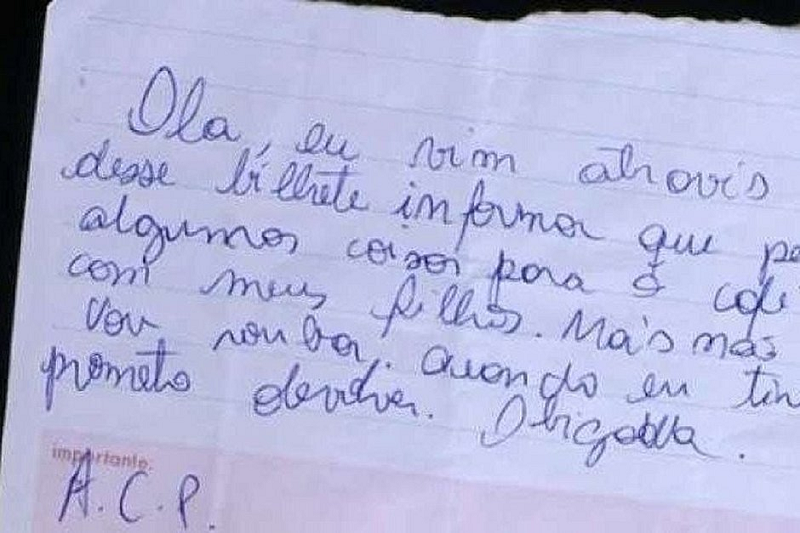 Ola, eu vim atravis
desse bilhete informar que pe
algumas coisas para o cafe
com meus filhos. Mais mas
Vou rouba. Quando eu tin
prometo devolver. Obigada.
importante:
A.C.P.